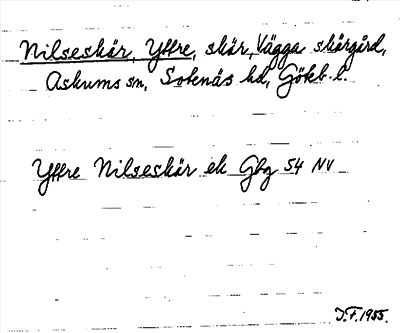 Nilseskär, Yttre, skär, Vägga skärgård,
Askums sn, Sotenäs hd, Götebl. l.
Yttre Nilseskär ek Gbg 54 NV
J.F. 1955.